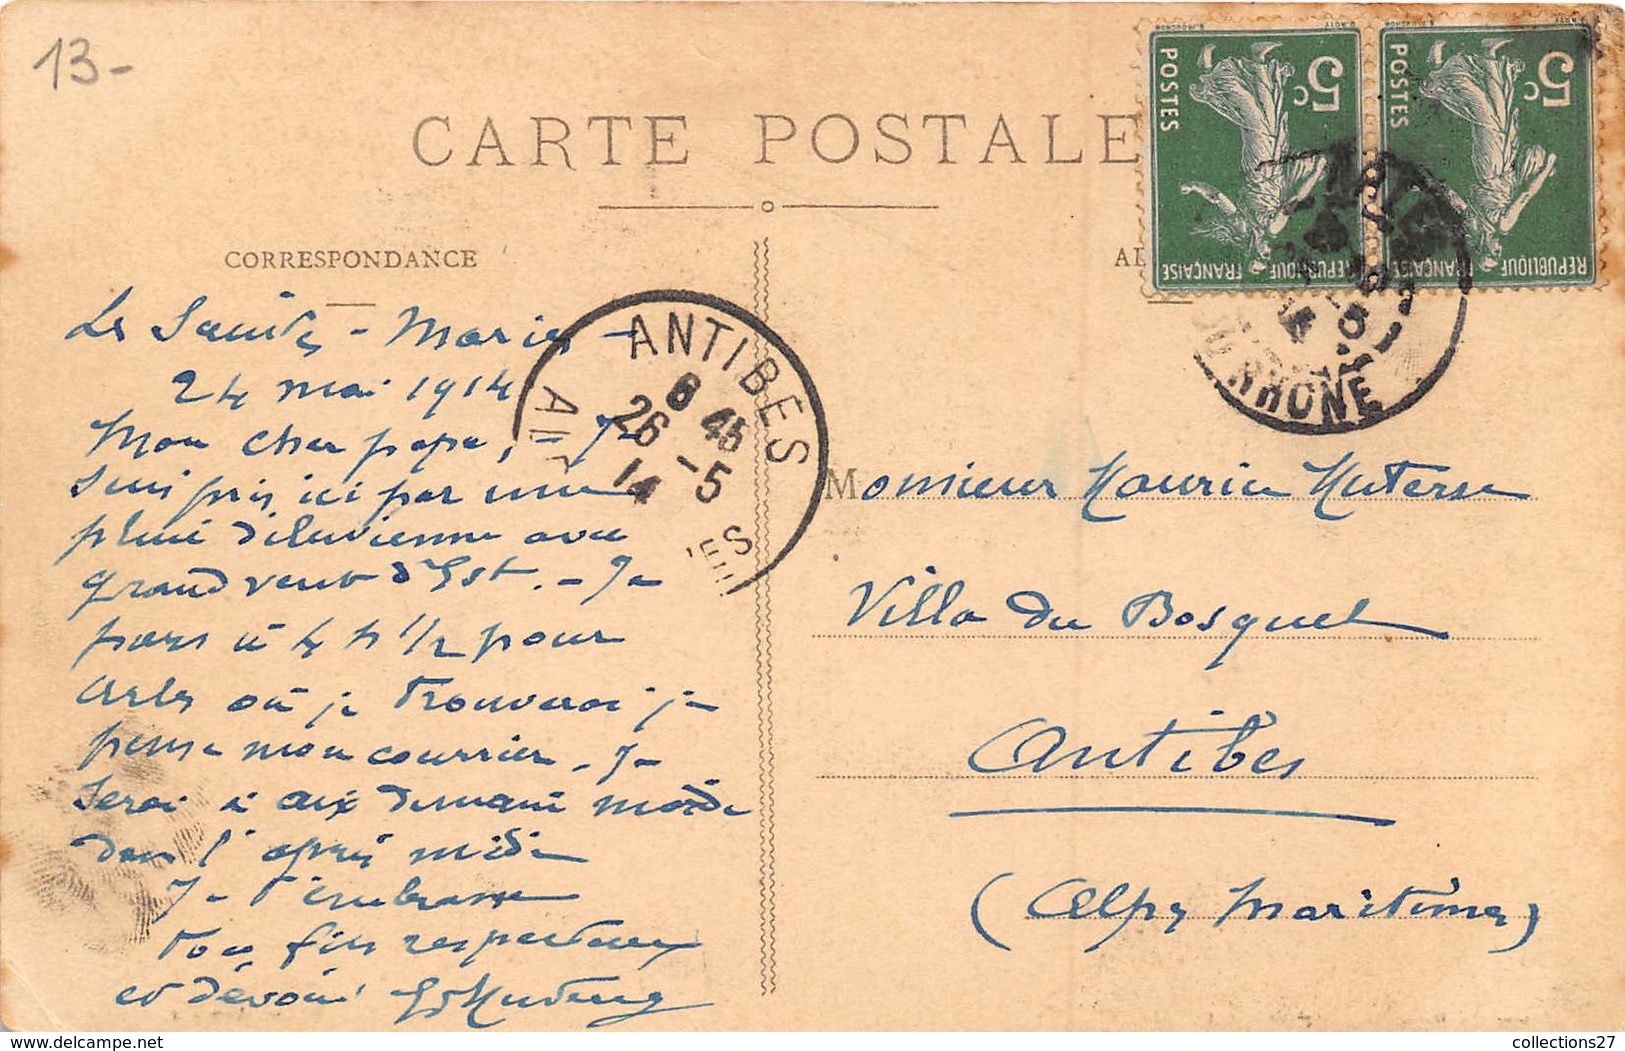 13-
CARTE POSTALE
CORRESPONDANCE
Les Saintes-Maries-
24 mai 1914
Mon cher papa, - Je
suis pris ici par une
pluie diluvienne avec
grand vent d'Est. - Je
pars à 4 h 1/2 pour
Arles où je trouverai je
pense mon courrier. Je
serai à Aix demain mardi
dans l'après midi
Je t'embrasse
Ton fils respectueux
et dévoué
ANTIBES
6 45
26 -5
14
5c
POSTES
REPUBLIQUE FRANÇAISE
5c
POSTES
REPUBLIQUE FRANÇAISE
DU RHONE
Monsieur Maurice
Villa du Bosquet
Antibes
(Alpes Maritimes)
collections27